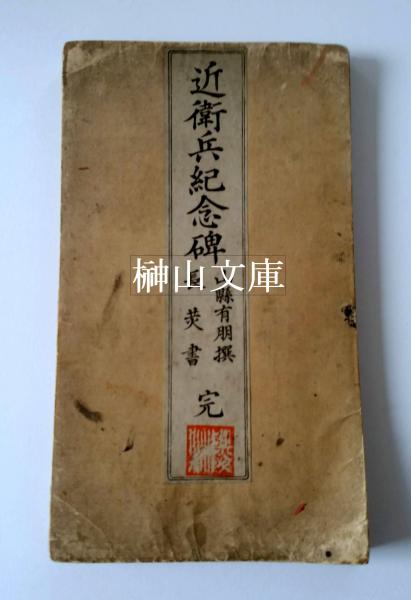 近衛兵紀念碑
縣有朋撰
炗書
完
榊山文庫